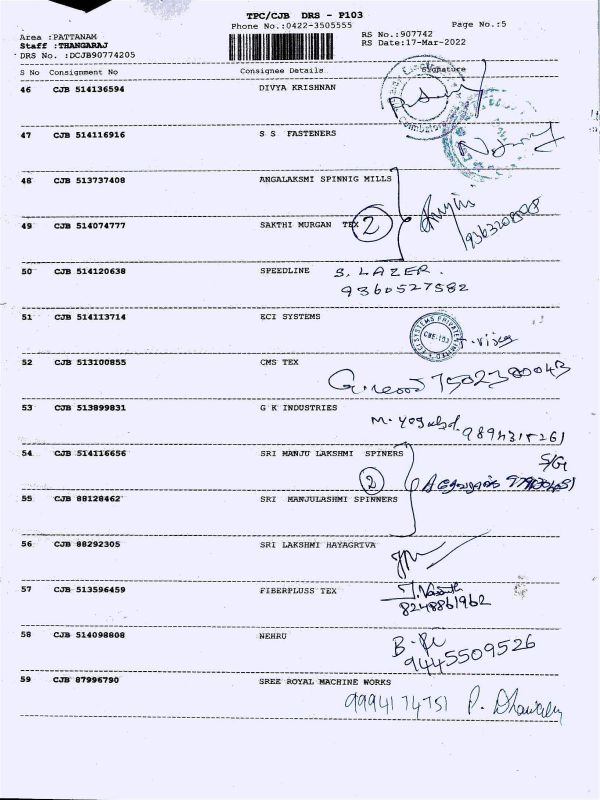 TPC/CJB DRS - P103
Phone No.:0422-3505555
Page No.:5
Area :PATTANAM
RS No.:907742
Staff :THANGARAJ
RS Date:17-Mar-2022
DRS No. :DCJB90774205
S No Consignment No Consignee Details Signature
46 CJB 514136594 DIVYA KRISHNAN
47 CJB 514116916 S S FASTENERS
48 CJB 513737408 ANGALAKSMI SPINNIG MILLS
49 CJB 514074777 SAKTHI MURGAN TEX 2
50 CJB 514120638 SPEEDLINE S. LAZER.
9360527582
51 CJB 514113714 ECI SYSTEMS
52 CJB 513100855 CMS TEX
53 CJB 513899831 G K INDUSTRIES
9894315261
54 CJB 514116656 SRI MANJU LAKSHMI SPINERS
2
55 CJB 88128462 SRI MANJULASHMI SPINNERS
56 CJB 88292305 SRI LAKSHMI HAYAGRIVA
57 CJB 513596459 FIBERPLUSS TEX
8248861962
58 CJB 514098808 NEHRU
9445509526
59 CJB 87996790 SREE ROYAL MACHINE WORKS
9994174751